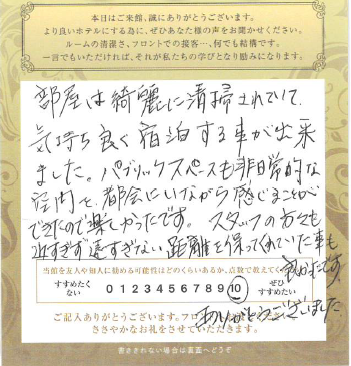 本日はご来館、誠にありがとうございます。
より良いホテルにする為に、ぜひあなた様の声をお聞かせください。
ルームの清潔さ、フロントでの接客…、何でも結構です。
一言でもいただければ、それが私たちの学びとなり励みになります。
部屋は綺麗に清掃されていて、
気持ち良く宿泊する事が出来
ました。パブリックスペースも非日常的な
空間を、都会にいながら感じることが
できたので楽しかったです。スタッフの方々も
近すぎず遠すぎない距離を保ってくれていた事も
良かったです。
当館を友人や知人に勧める可能性はどのくらいあるか、点数で教えてください
すすめたくない 0 1 2 3 4 5 6 7 8 9 10 ぜひすすめたい
ありがとうございました
ご記入ありがとうございます。フロント
ささやかなお礼をさせていただきます。
書ききれない場合は裏面へどうぞ